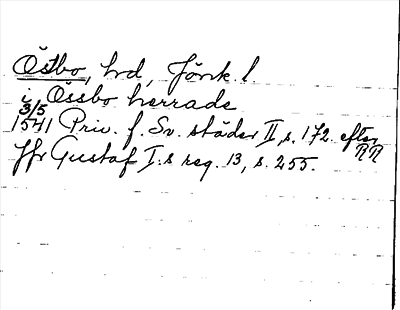 Östbo, hrd, Jönk. l.
i Ossbo herrade
3/5
1541 Priv. f. Sv. städer II, s. 172. efter RR
Jfr Gustaf I:s reg. 13, s. 255.